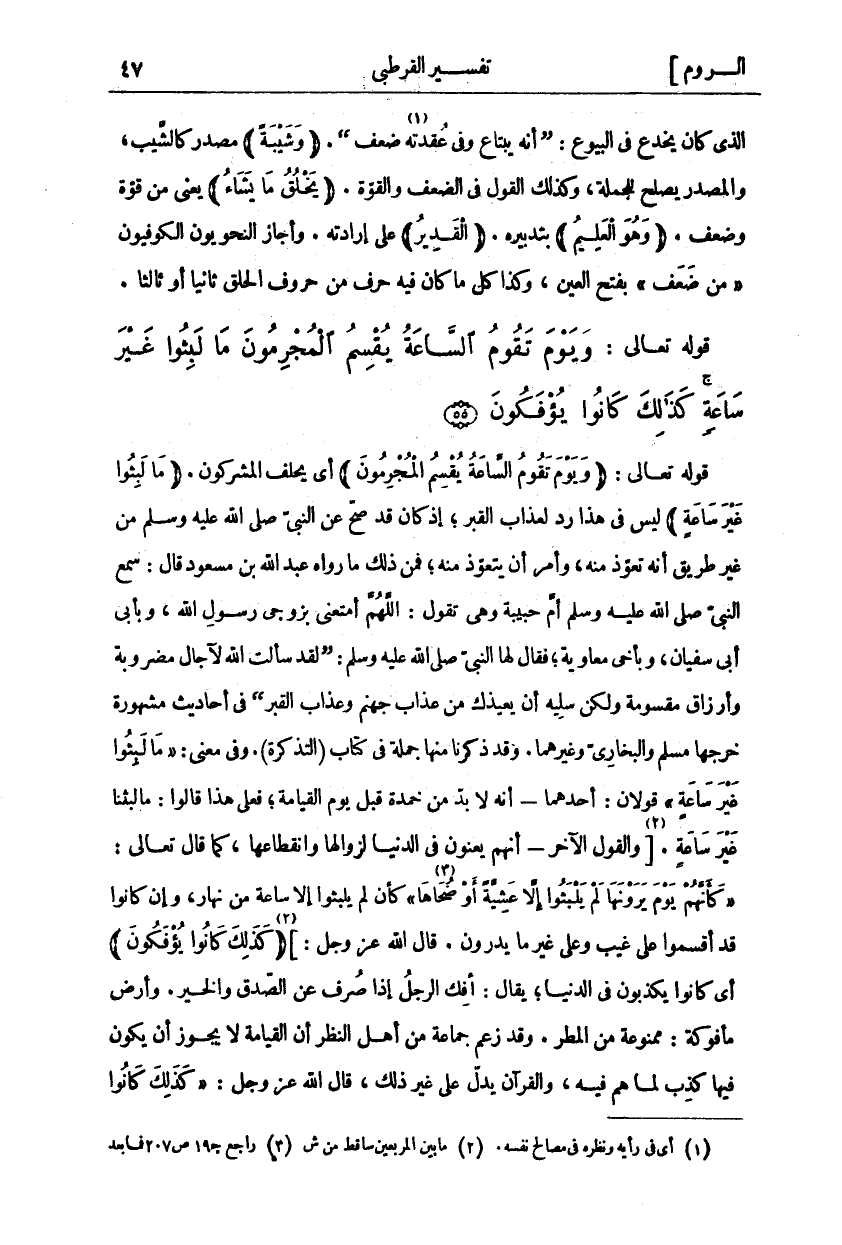 الــروم ] تفســـير القرطبى ٤٧
الذى كان يخدع فى البيوع : ”أنه يبتاع وفى عُقدته ضعف“ (١) . ﴿ وَشَيْبَةً ﴾ مصدر كالشَّيب،
والمصدر يصلح للجملة، وكذلك القول فى الضعف والقوّة . ﴿ يَخْلُقُ مَا يَشَاءُ ﴾ يعنى من قوّة
وضعف . ﴿ وَهُوَ الْعَلِيمُ ﴾ بتدبيره . ﴿ الْقَدِيرُ ﴾ على إرادته . وأجاز النحويون الكوفيون
« من ضَعَف » بفتح العين ، وكذا كل ما كان فيه حرف من حروف الحلق ثانيا أو ثالثا .
قوله تعـالى : وَيَوْمَ تَقُومُ ٱلسَّاعَةُ يُقْسِمُ ٱلْمُجْرِمُونَ مَا لَبِثُوا غَيْرَ
سَاعَةٍ ۚ كَذَٰلِكَ كَانُوا يُؤْفَكُونَ ٥٥
قوله تعـالى : ﴿ وَيَوْمَ تَقُومُ السَّاعَةُ يُقْسِمُ الْمُجْرِمُونَ ﴾ أى يحلف المشركون . ﴿ مَا لَبِثُوا
غَيْرَ سَاعَةٍ ﴾ ليس فى هذا رد لعذاب القبر ؛ إذ كان قد صحّ عن النبىّ صلى الله عليه وسـلم من
غير طريق أنه تعوّذ منه، وأمر أن يتعوّذ منه؛ فمن ذلك ما رواه عبد الله بن مسعود قال : سمع
النبىّ صلى الله عليـه وسلم أمّ حبيبة وهى تقول : اللَّهُمَّ أمتعنى بزوجى رسـول الله ، وبأبى
أبى سفيان، وبأخى معاوية؛ فقال لها النبىّ صلى الله عليه وسلم: ”لقد سألت الله لآجال مضروبة
وأرزاق مقسومة ولكن سليه أن يعيذك من عذاب جهنم وعذاب القبر“ فى أحاديث مشهورة
خرجها مسلم والبخارىّ وغيرهما. وقد ذكرنا منها جملة فى كتاب (التذكرة). وفى معنى: « مَا لَبِثُوا
غَيْرَ سَاعَةٍ » قولان : أحدهما — أنه لا بدّ من خمدة قبل يوم القيامة؛ فعلى هذا قالوا : ما لبثنا
غَيْرَ سَاعَةٍ . (٢) [ والقول الآخر — أنهم يعنون فى الدنيـا لزوالها وانقطاعها ، كما قال تعـالى :
« كَأَنَّهُمْ يَوْمَ يَرَوْنَهَا لَمْ يَلْبَثُوا إِلَّا عَشِيَّةً أَوْ ضُحَاهَا» (٣) كأن لم يلبثوا إلا ساعة من نهار، وإن كانوا
قد أقسموا على غيب وعلى غير ما يدرون . قال الله عز وجل : ] (٢) ﴿ كَذَلِكَ كَانُوا يُؤْفَكُونَ ﴾
أى كانوا يكذبون فى الدنيـا؛ يقال : أُفِك الرجلُ إذا صُرف عن الصّدق والخـير. وأرض
مأفوكة : ممنوعة من المطر . وقد زعم جماعة من أهـل النظر أن القيامة لا يجـوز أن يكون
فيها كذِب لمـا هم فيـه ، والقرآن يدلّ على غير ذلك ، قال الله عز وجل : « كَذَلِكَ كَانُوا
(١) أى فى رأيه ونظره فى مصالح نفسه. (٢) ما بين المربعين ساقط من ش (٣) راجع ج١٩ ص٢٠٧ فـا بعد